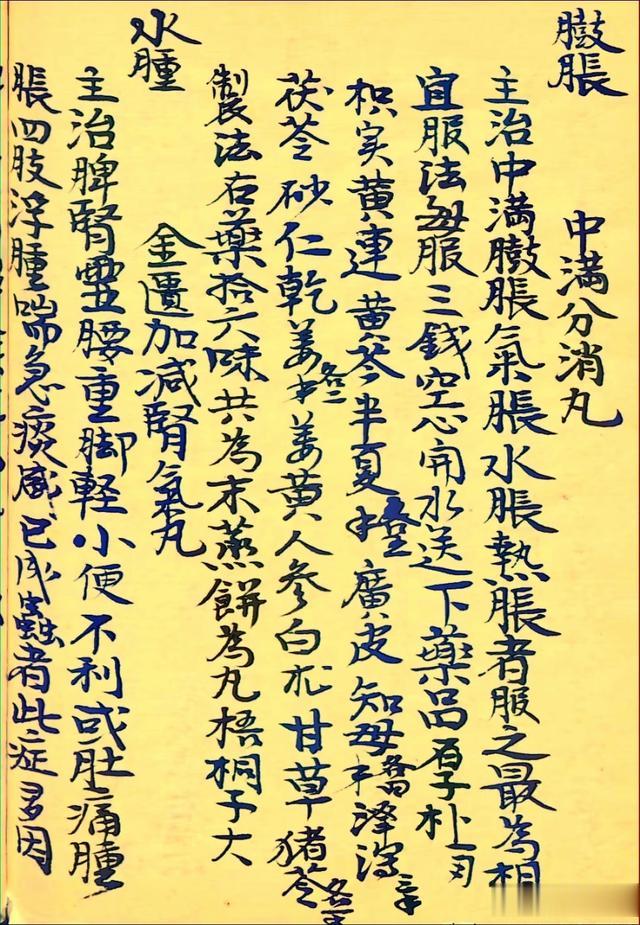 臌脹
中滿分消丸
主治中滿臌脹氣脹水脹熱脹者服之最為相
宜服法每服三錢空心開水送下藥品厚朴
枳实黄連黄芩半夏廣皮知母澤瀉
茯苓砂仁乾姜姜黄人參白朮甘草猪苓
製法右藥拾六味共為末蒸餅為丸梧桐子大
水腫
金匱加減腎氣丸
主治脾腎虛腰重脚軽小便不利或肚痛腫
脹四肢浮腫喘急痰盛已成蠱者此症多因